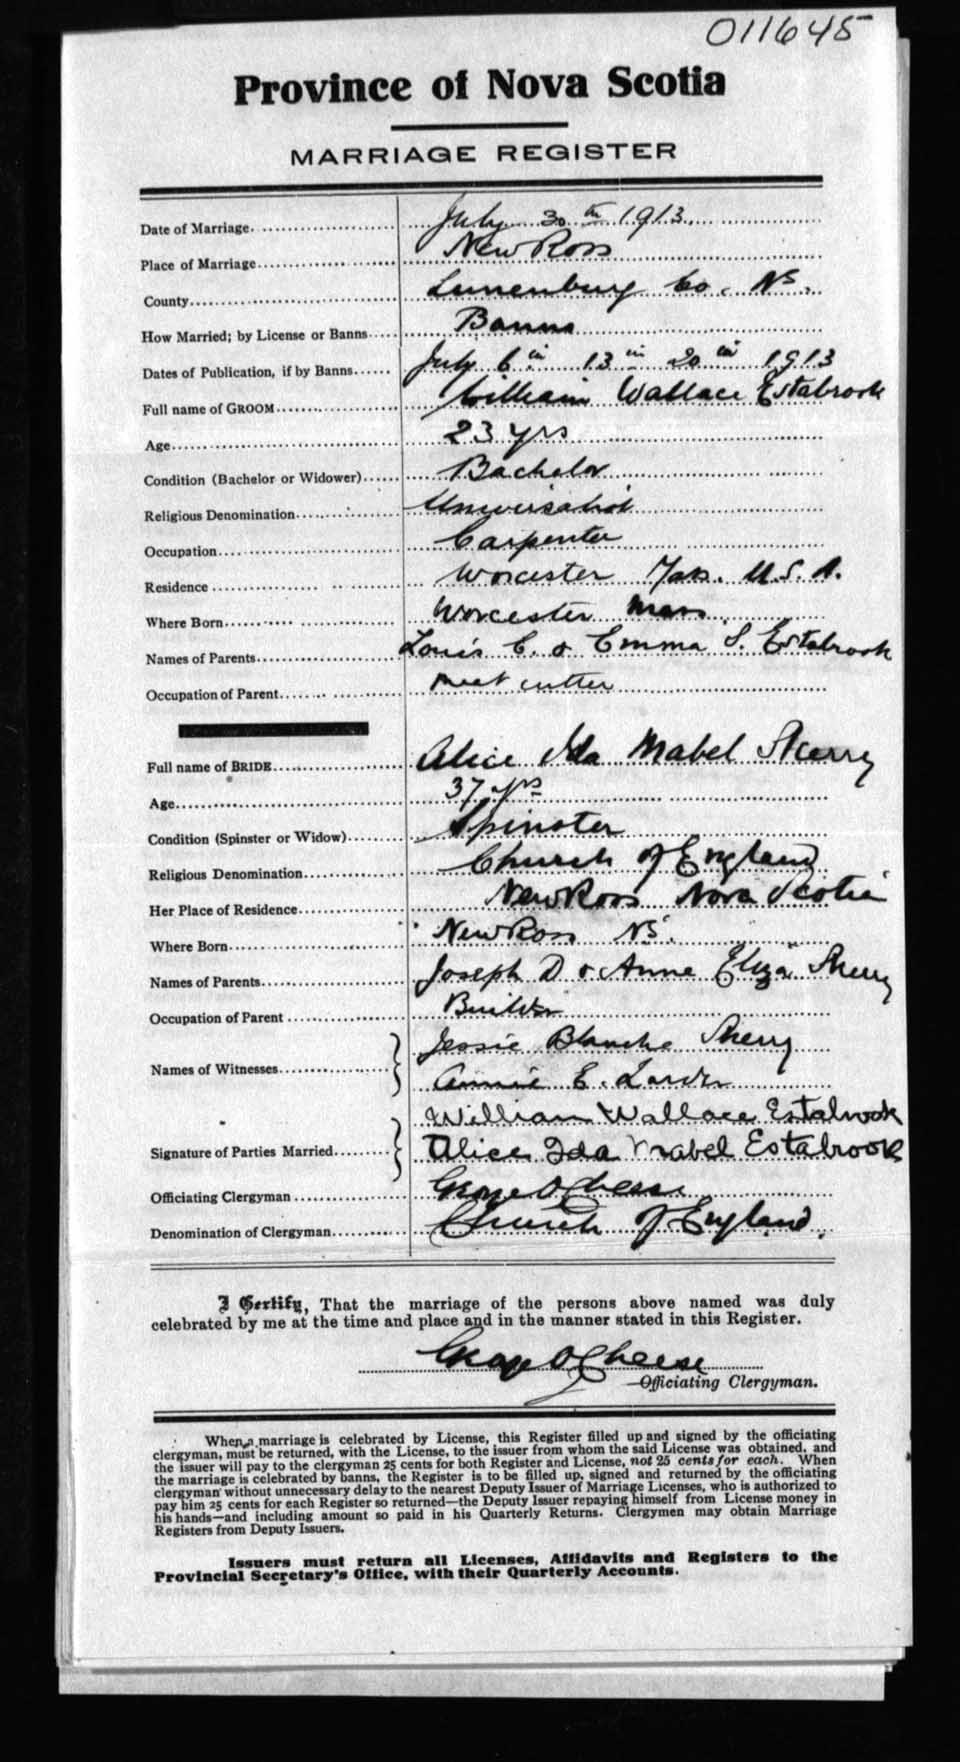 011645
Province of Nova Scotia
MARRIAGE REGISTER
Date of Marriage July 30th 1913
Place of Marriage New Ross
County Lunenburg Co. NS.
How Married; by License or Banns Banns
Dates of Publication, if by Banns July 6th 13th 20th 1913
Full name of GROOM William Wallace Estabrook
Age 23 yrs
Condition (Bachelor or Widower) Bachelor
Religious Denomination Universalist
Occupation Carpenter
Residence Worcester Mass. U.S.A.
Where Born Worcester Mass
Names of Parents Louis C. & Emma S. Estabrook
Occupation of Parent meat cutter
Full name of BRIDE Alice Ida Mabel Skerry
Age 37 yrs
Condition (Spinster or Widow) Spinster
Religious Denomination Church of England
Her Place of Residence New Ross Nova Scotia
Where Born New Ross NS.
Names of Parents Joseph D & Anne Eliza Skerry
Occupation of Parent Builder
Names of Witnesses Jessie Blanche Skerry
Annie E. Larder
William Wallace Estabrook
Signature of Parties Married Alice Ida Mabel Estabrook
Officiating Clergyman George O Cheese
Denomination of Clergyman Church of England.
I Certify, That the marriage of the persons above named was duly
celebrated by me at the time and place and in the manner stated in this Register.
George O Cheese
Officiating Clergyman.
When a marriage is celebrated by License, this Register filled up and signed by the officiating
clergyman, must be returned, with the License, to the issuer from whom the said License was obtained, and
the issuer will pay to the clergyman 25 cents for both Register and License, not 25 cents for each. When
the marriage is celebrated by banns, the Register is to be filled up, signed and returned by the officiating
clergyman without unnecessary delay to the nearest Deputy Issuer of Marriage Licenses, who is authorized to
pay him 25 cents for each Register so returned—the Deputy Issuer repaying himself from License money in
his hands—and including amount so paid in his Quarterly Returns. Clergymen may obtain Marriage
Registers from Deputy Issuers.
Issuers must return all Licenses, Affidavits and Registers to the
Provincial Secretary's Office, with their Quarterly Accounts.